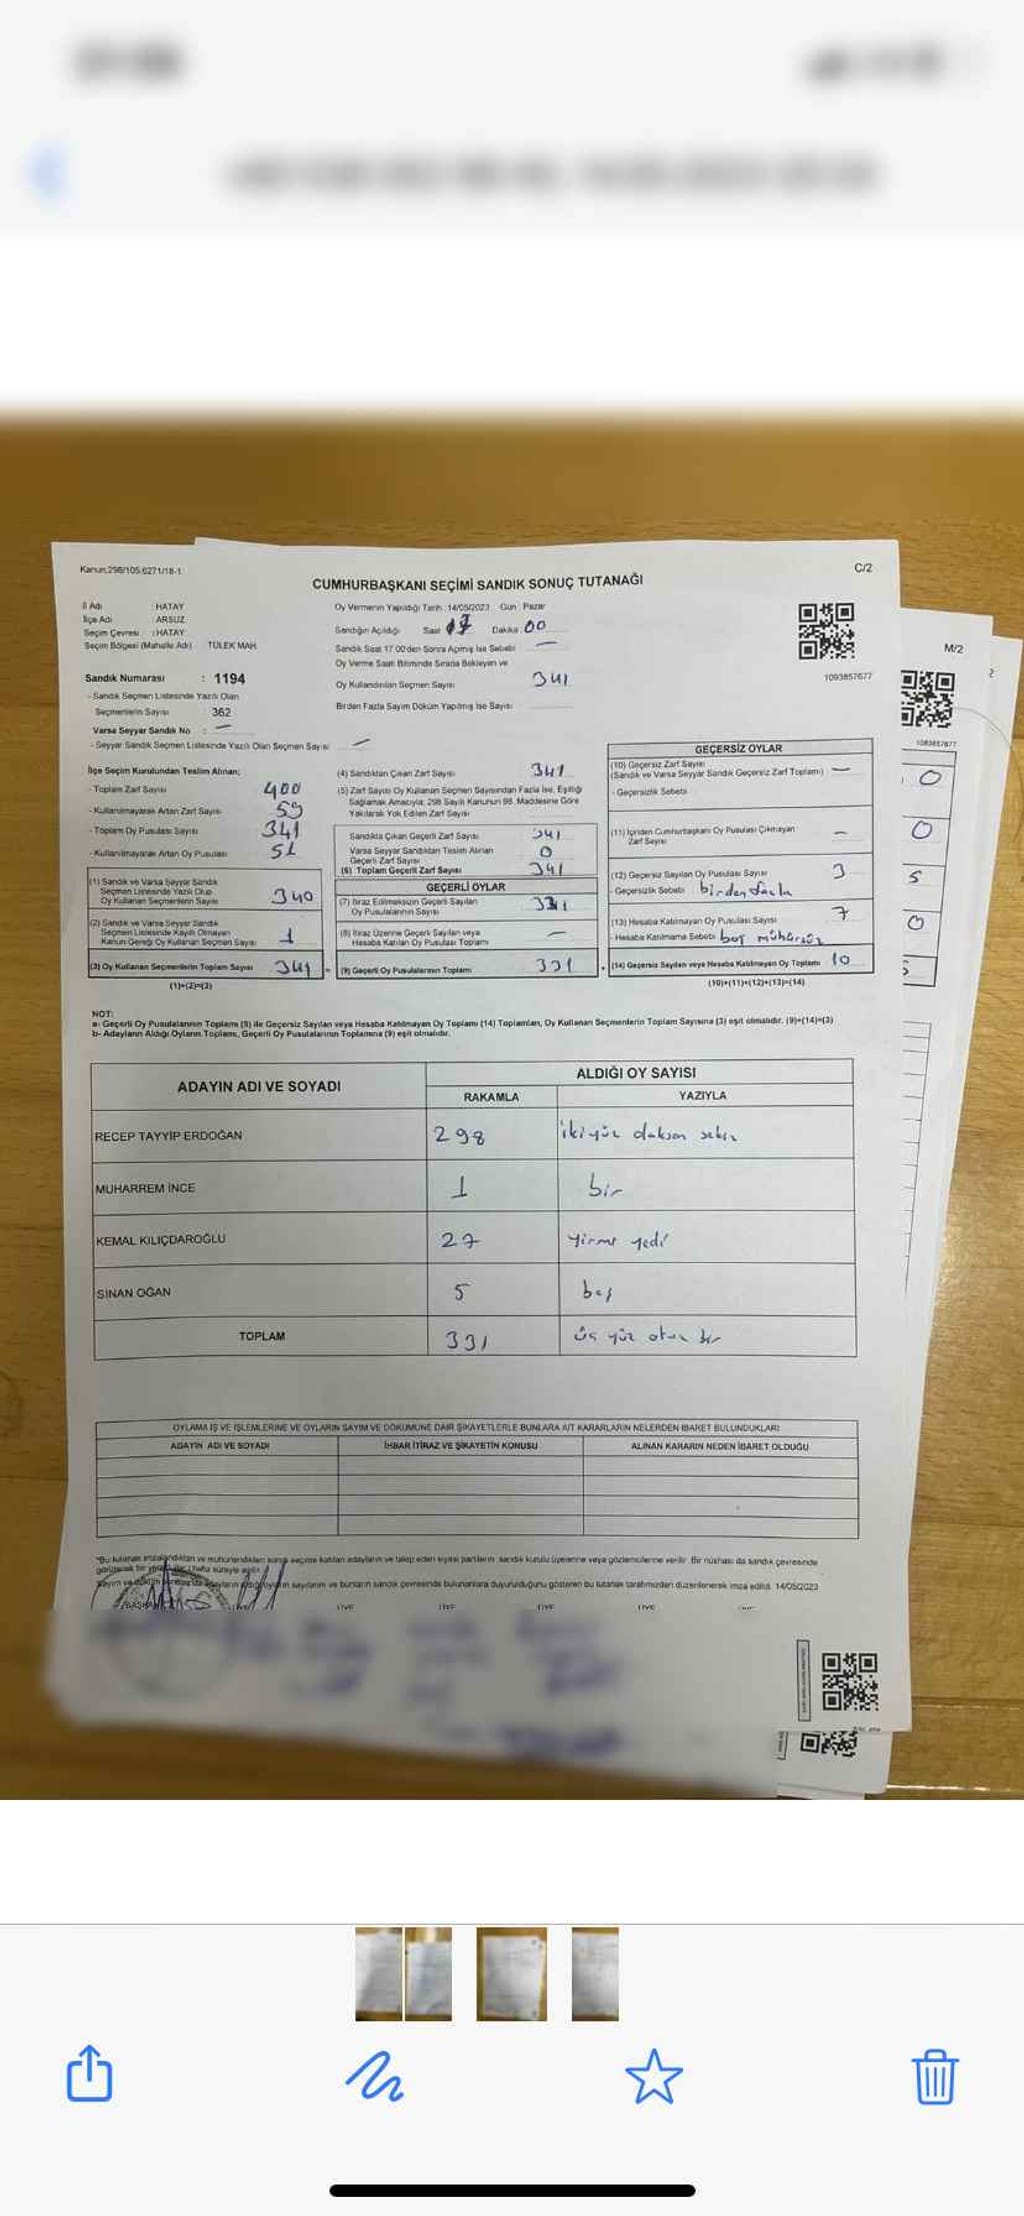 Kanun.298/105.6271/18-1
C/2
CUMHURBAŞKANI SEÇİMİ SANDIK SONUÇ TUTANAĞI
İl Adı : HATAY
İlçe Adı : ARSUZ
Seçim Çevresi : HATAY
Seçim Bölgesi (Mahalle Adı) TÜLEK MAH.
Oy Vermenin Yapıldığı Tarih: 14/05/2023 Gün: Pazar
Sandığın Açıldığı Saat 17 Dakika 00
Sandık Saat 17.00'den Sonra Açılmış İse Sebebi —
Oy Verme Saati Bitiminde Sırada Bekleyen ve
Oy Kullandırılan Seçmen Sayısı 341
Birden Fazla Sayım Döküm Yapılmış İse Sayısı
1093857677
Sandık Numarası : 1194
- Sandık Seçmen Listesinde Yazılı Olan
Seçmenlerin Sayısı 362
Varsa Seyyar Sandık No : —
- Seyyar Sandık Seçmen Listesinde Yazılı Olan Seçmen Sayısı —
İlçe Seçim Kurulundan Teslim Alınan;
- Toplam Zarf Sayısı 400
- Kullanılmayarak Artan Zarf Sayısı 59
- Toplam Oy Pusulası Sayısı 341
- Kullanılmayarak Artan Oy Pusulası 51
(1) Sandık ve Varsa Seyyar Sandık
Seçmen Listesinde Yazılı Olup
Oy Kullanan Seçmenlerin Sayısı 340
(2) Sandık ve Varsa Seyyar Sandık
Seçmen Listesinde Kayıtlı Olmayan
Kanun Gereği Oy Kullanan Seçmen Sayısı 1
(3) Oy Kullanan Seçmenlerin Toplam Sayısı 341
(1)+(2)=(3)
(4) Sandıktan Çıkan Zarf Sayısı 341
(5) Zarf Sayısı Oy Kullanan Seçmen Sayısından Fazla İse, Eşitliği
Sağlamak Amacıyla; 298 Sayılı Kanunun 98. Maddesine Göre
Yakılarak Yok Edilen Zarf Sayısı
Sandıkta Çıkan Geçerli Zarf Sayısı 341
Varsa Seyyar Sandıktan Teslim Alınan
Geçerli Zarf Sayısı 0
(6) Toplam Geçerli Zarf Sayısı 341
GEÇERLİ OYLAR
(7) İtiraz Edilmeksizin Geçerli Sayılan
Oy Pusulalarının Sayısı 331
(8) İtiraz Üzerine Geçerli Sayılan veya
Hesaba Katılan Oy Pusulası Toplamı —
(9) Geçerli Oy Pusulalarının Toplamı 331
GEÇERSİZ OYLAR
(10) Geçersiz Zarf Sayısı
(Sandık ve Varsa Seyyar Sandık Geçersiz Zarf Toplamı) —
- Geçersizlik Sebebi
(11) İçinden Cumhurbaşkanı Oy Pusulası Çıkmayan
Zarf Sayısı —
(12) Geçersiz Sayılan Oy Pusulası Sayısı 3
- Geçersizlik Sebebi birden fazla
(13) Hesaba Katılmayan Oy Pusulası Sayısı 7
- Hesaba Katılmama Sebebi boş mühürsüz
(14) Geçersiz Sayılan veya Hesaba Katılmayan Oy Toplamı 10
(10)+(11)+(12)+(13)=(14)
NOT:
a- Geçerli Oy Pusulalarının Toplamı (9) ile Geçersiz Sayılan veya Hesaba Katılmayan Oy Toplamı (14) Toplamları, Oy Kullanan Seçmenlerin Toplam Sayısına (3) eşit olmalıdır. (9)+(14)=(3)
b- Adayların Aldığı Oyların Toplamı, Geçerli Oy Pusulalarının Toplamına (9) eşit olmalıdır.
ADAYIN ADI VE SOYADI
ALDIĞI OY SAYISI
RAKAMLA YAZIYLA
RECEP TAYYİP ERDOĞAN 298 ikiyüz doksan sekiz
MUHARREM İNCE 1 bir
KEMAL KILIÇDAROĞLU 27 yirmi yedi
SİNAN OĞAN 5 beş
TOPLAM 331 üç yüz otuz bir
OYLAMA İŞ VE İŞLEMLERİNE VE OYLARIN SAYIM VE DÖKÜMÜNE DAİR ŞİKAYETLERLE BUNLARA AİT KARARLARIN NELERDEN İBARET BULUNDUKLARI
ADAYIN ADI VE SOYADI
İHBAR İTİRAZ VE ŞİKAYETİN KONUSU
ALINAN KARARIN NEDEN İBARET OLDUĞU
"Bu tutanak imzalandıktan ve mühürlendikten sonra seçime katılan adayların ve talep eden siyasi partilerin sandık kurulu üyelerine veya gözlemcilerine verilir. Bir nüshası da sandık çevresinde
görülecek bir yere bir hafta süreyle asılır.
sayılarını ve bunların sandık çevresinde bulunanlara duyurulduğunu gösteren bu tutanak tarafımızdan düzenlenerek imza edildi. 14/05/2023
BAŞKAN
ÜYE ÜYE ÜYE ÜYE
M/2
1093857677
0
0
5
0
2